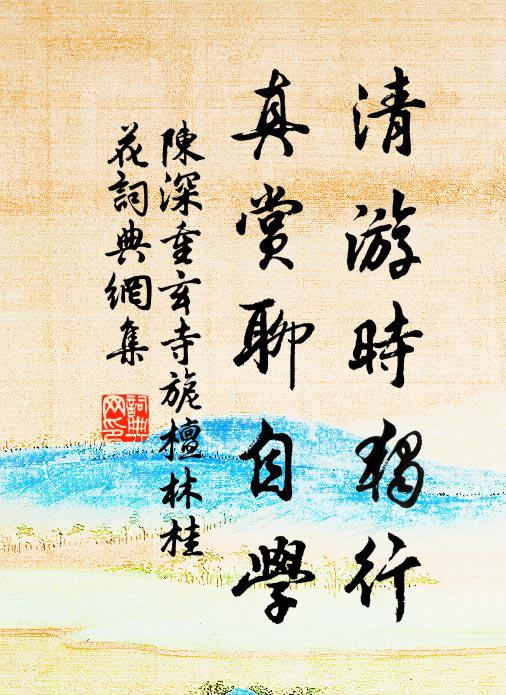 清游時獨行
真賞聊自學
陳深重玄寺旃檀林桂
花詞典網集
詞典網印